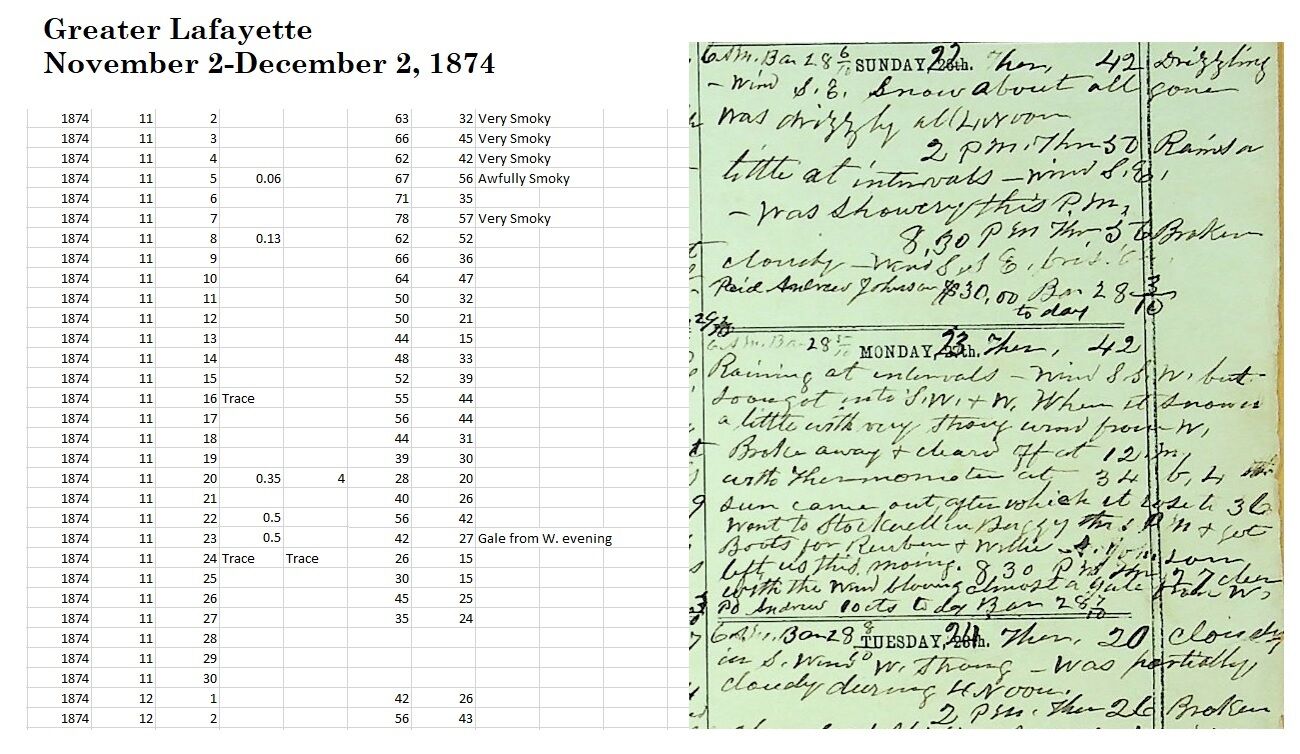 Greater Lafayette
November 2-December 2, 1874
1874 11 2 63 32 Very Smoky
1874 11 3 66 45 Very Smoky
1874 11 4 62 42 Very Smoky
1874 11 5 0.06 67 56 Awfully Smoky
1874 11 6 71 35
1874 11 7 78 57 Very Smoky
1874 11 8 0.13 62 52
1874 11 9 66 36
1874 11 10 64 47
1874 11 11 50 32
1874 11 12 50 21
1874 11 13 44 15
1874 11 14 48 33
1874 11 15 52 39
1874 11 16 Trace 55 44
1874 11 17 56 44
1874 11 18 44 31
1874 11 19 39 30
1874 11 20 0.35 4 28 20
1874 11 21 40 26
1874 11 22 0.5 56 42
1874 11 23 0.5 42 27 Gale from W. evening
1874 11 24 Trace Trace 26 15
1874 11 25 30 15
1874 11 26 45 25
1874 11 27 35 24
1874 11 28
1874 11 29
1874 11 30
1874 12 1 42 26
1874 12 2 56 43
6 A.M. Bar 28 6/10 SUNDAY, 22 Ther, 42 Drizzling
- Wind S.E. Snow about all gone
Was drizzly all 4 Noon
2 P.M. Ther 50 Rains a
little at intervals - Wind S.E.
- Was showery this P.M.
8,30 P M Ther 56 Broken
cloudy - Wind S E,
Paid Andrew Johnson $30,00 Bar 28 3/10
to day
6 A.M. Bar 28 MONDAY, 23 Ther, 42
Raining at intervals - Wind S.S.W. but
soon got into S.W. + W. When it snowed
a little with very strong wind from W,
Broke away + cleard off at 12 m,
with Thermometer at 34 b, 4
sun came out, after which it rose to 36
Went to Stockwell in Buggy this P M + got
Boots for Reuben + Willie
left us this morning. 8 30 P M Ther 27 clear
with the wind blowing almost a gale from W,
Pd Andrew 10cts to day Bar 28 7/10
6 A.M. Bar 28 8 TUESDAY, 24 Ther, 20 cloudy
in S. Wind W. Strong - Was partially
cloudy during 4 Noon.
2 P.M. Ther 26 Broken